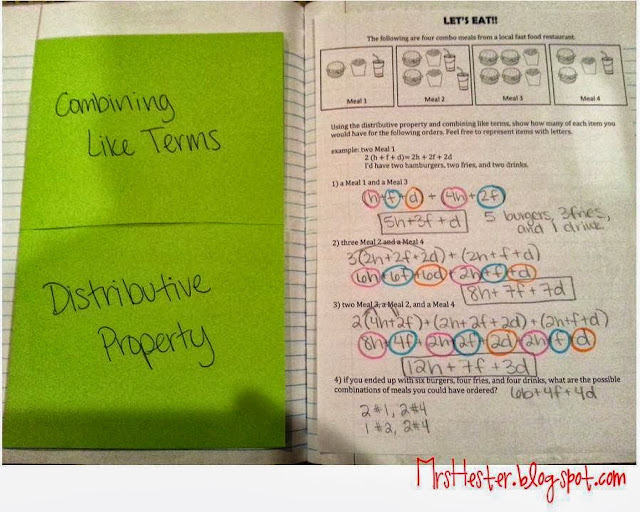 Combining
Like Terms
Distributive
Property
LET'S EAT!!
The following are four combo meals from a local fast food restaurant.
Meal 1
Meal 2
Meal 3
Meal 4
Using the distributive property and combining like terms, show how many of each item you
would have for the following orders. Feel free to represent items with letters.
example: two Meal 1
2 (h + f + d)= 2h + 2f + 2d
I'd have two hamburgers, two fries, and two drinks.
1) a Meal 1 and a Meal 3
(h+f+d) + (4h+2f)
5h+3f+d
5 burgers, 3 fries,
and 1 drink
2) three Meal 2 and a Meal 4
3(2h+2f+2d) + (2h+f+d)
6h+6f+6d+2h+f+d
8h+7f+7d
3) two Meal 3, a Meal 2, and a Meal 4
2(4h+2f)+(2h+2f+2d)+(2h+f+d)
8h+4f+2h+2f+2d+2h+f+d
12h+7f+3d
4) if you ended up with six burgers, four fries, and four drinks, what are the possible
combinations of meals you could have ordered? 6b+4f+4d
2#1, 2#4
1#2, 2#4
MrsHester.blogspot.com